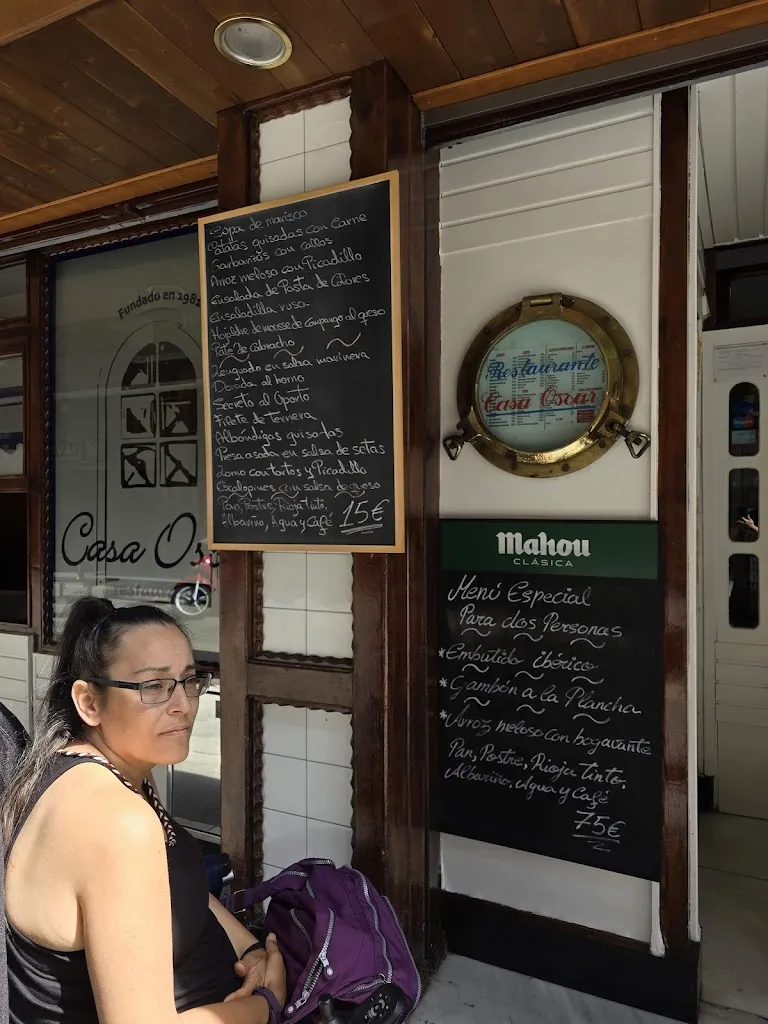 Fundado en 1981
Casa Os
restau
Sopa de marisco
Patatas guisadas con Carne
Garbanzos con callos
Arroz meloso con Picadillo
Ensalada de Pasta de Colores
Ensaladilla rusa
Hojaldre de mousse de Cangrejo al queso
Paté de Cabracho
Lenguado en salsa marinera
Dorada al horno
Secreto al Oporto
Filete de Ternera
Albóndigas guisadas
Presa asada en salsa de setas
Lomo con tortos y Picadillo
Escalopines con salsa de queso
Pan, Postre, Rioja tinto,
Albariño, Agua y Café 15€
Restaurante
Casa Oscar
Mahou
CLÁSICA
Menú Especial
Para dos Personas
*Embutido ibérico
*Gambón a la Plancha
*Arroz meloso con bogavante
Pan, Postre, Rioja tinto,
Albariño, Agua y Café
75€